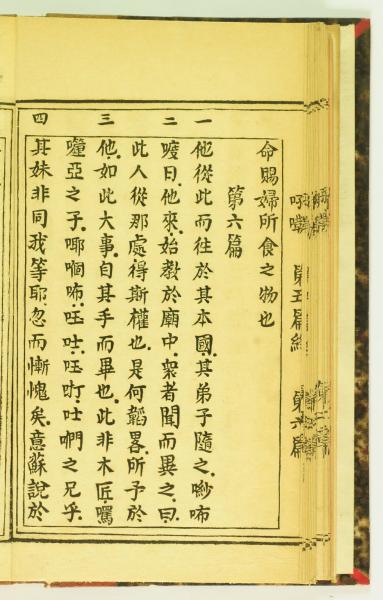 第五篇終 第六篇
命賜婦所食之物也
第六篇
一 他從此而往於其本國.其弟子隨之.咘
二 喥日.他來.始教於廟中.衆者聞而異之.曰.
此人從那處.得斯權也.是何韜畧.所予於
三 他.如此大事.自其手而畢也.此非木匠.
亞之子.哪咘.吐.吐之兄乎.
四 其妹非同我等耶.忽而慚愧矣.意蘇說於